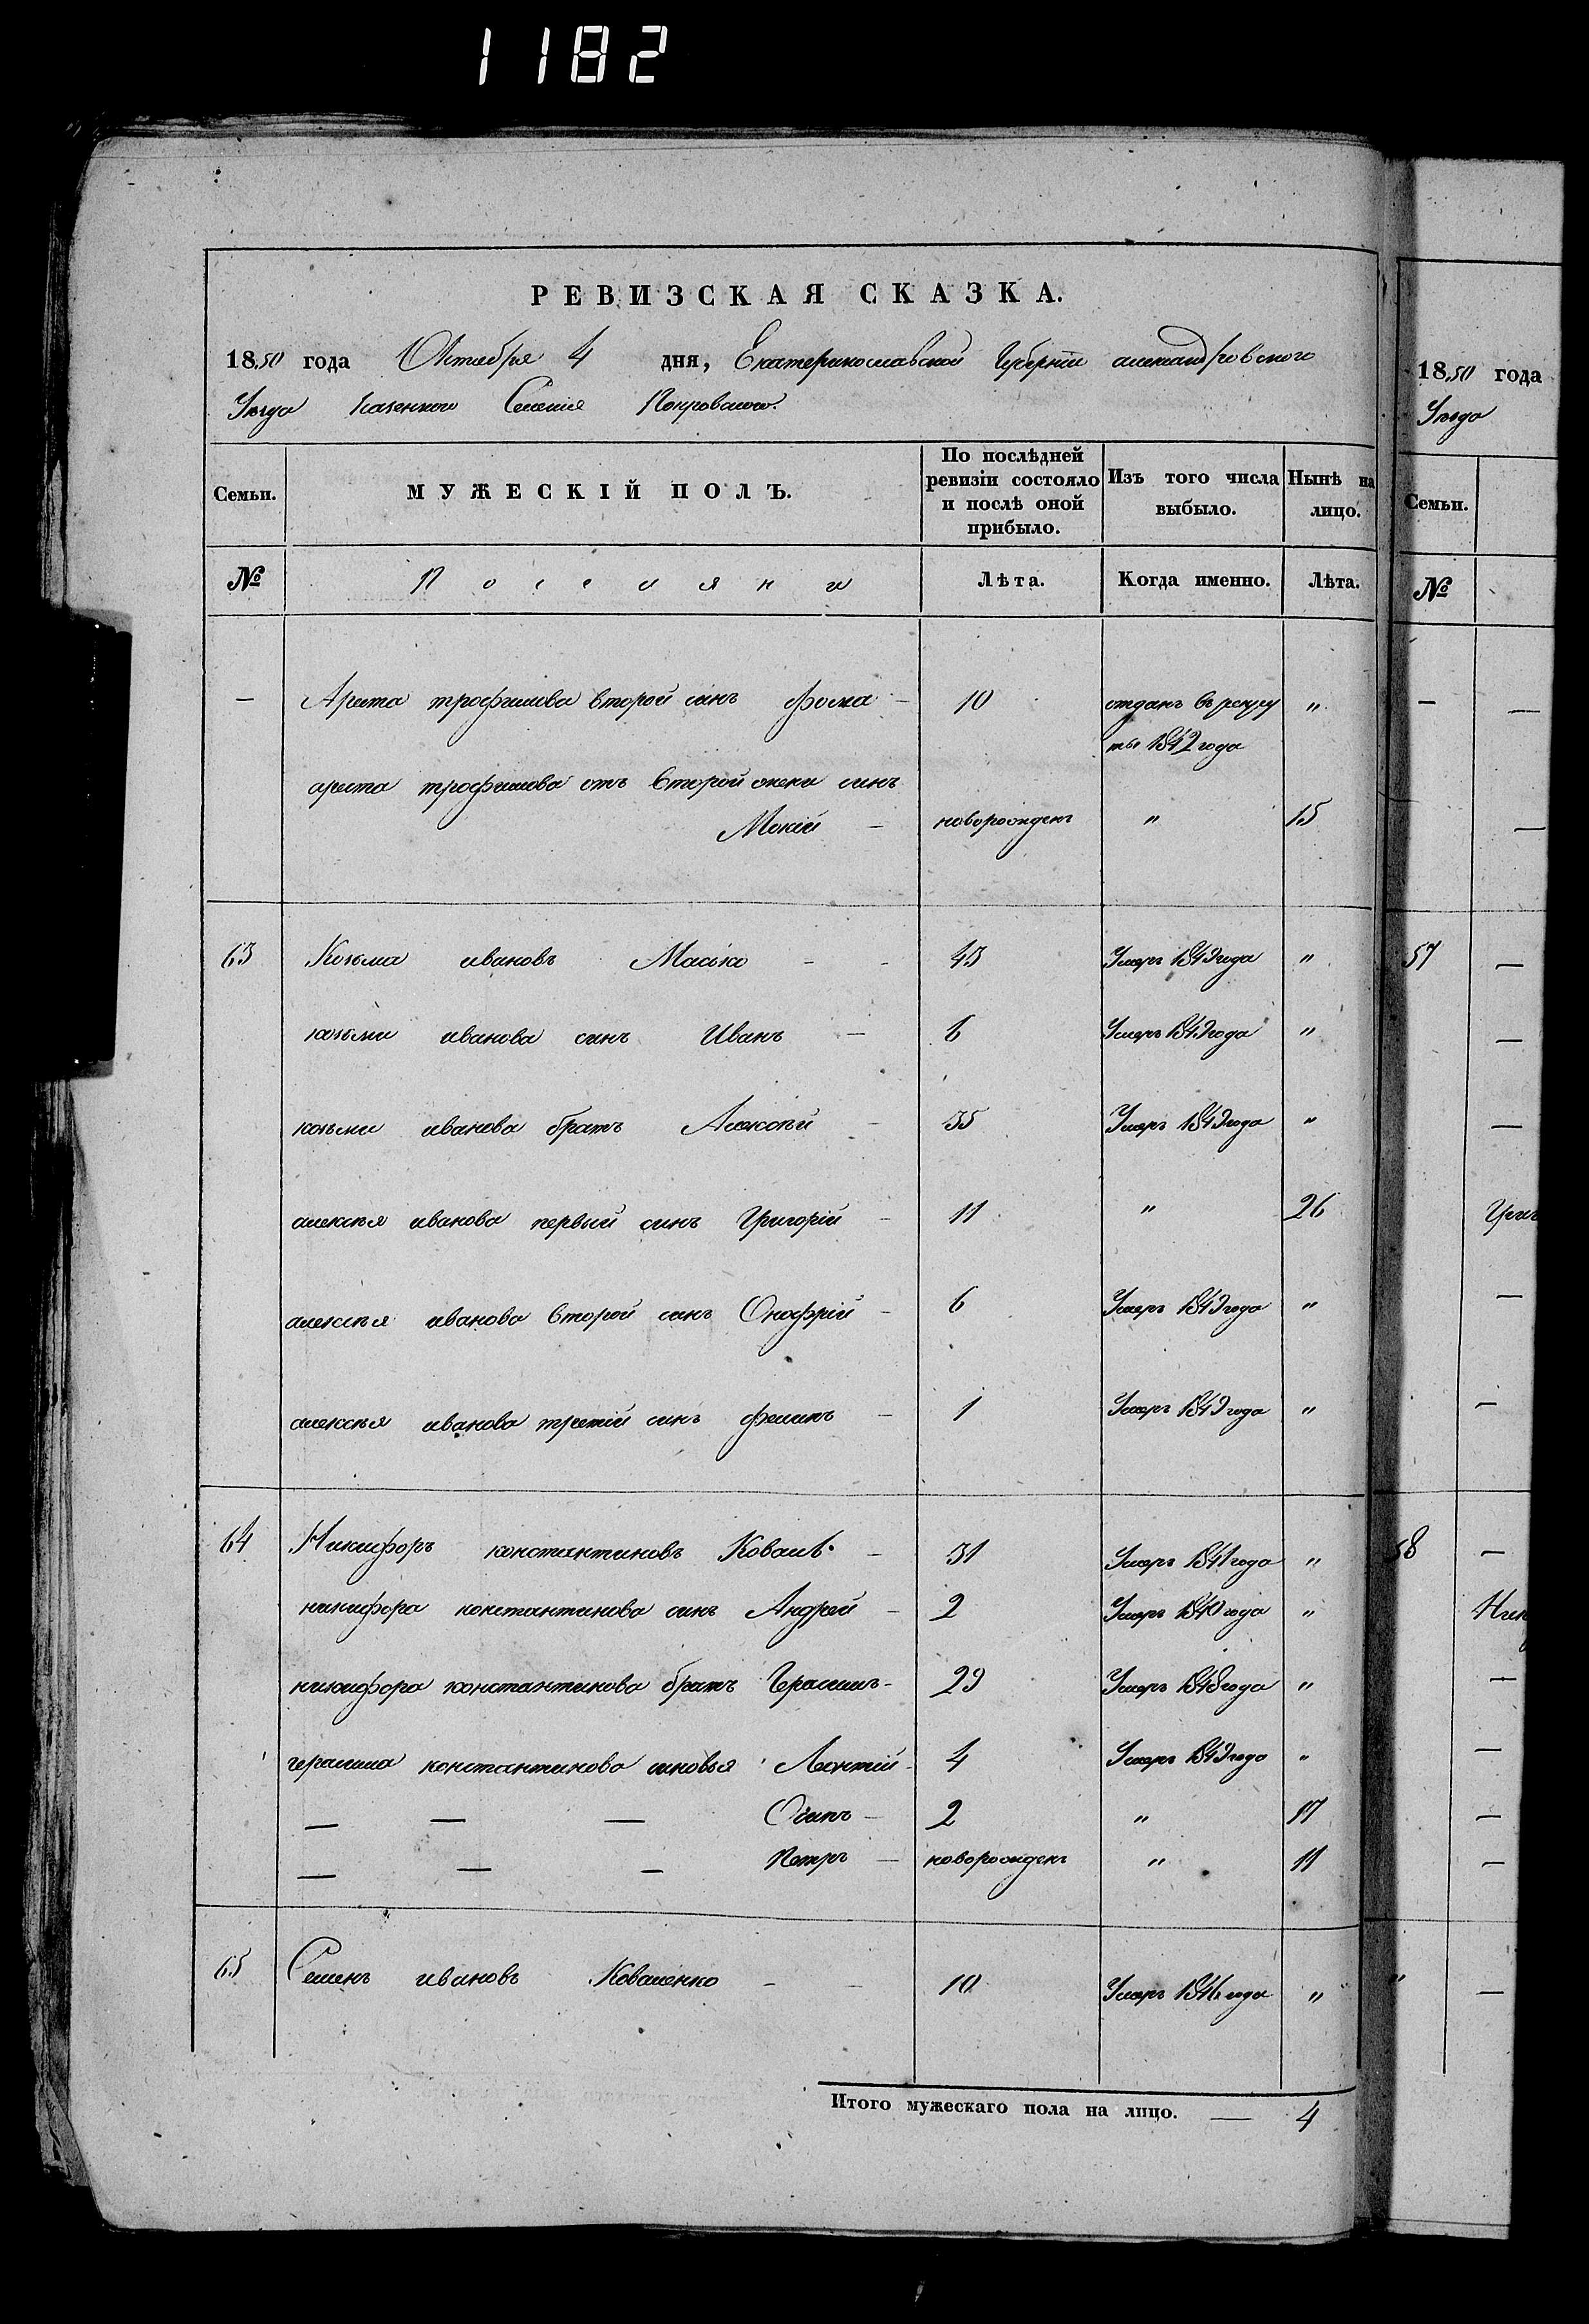 1182
РЕВИЗСКАЯ СКАЗКА.
1850 года Октября 4 дня, Екатеринославской Губернiи александровского
Уезда Казенного Селенiя Покровского.
Семьи. МУЖЕСКIЙ ПОЛЪ. По послѣдней ревизiи состояло и послѣ оной прибыло. Изъ того числа выбыло. Нынѣ на лицо.
№ Поселяни Лѣта. Когда именно. Лѣта.
— трофимова второй синъ фома — 10 отданъ въ рекру "
ты 1842 года
трофимова отъ второй жени синъ
Мокiй — новорожденъ " 15
63 Козьма ивановъ - - 43 Умеръ 1849 года "
козьми иванова синъ Иванъ — 6 Умеръ 1849 года "
козьми иванова братъ Алексѣй — 35 Умеръ 1849 года "
алексѣя иванова первый синъ Григорiй — 11 " 26
алексѣя иванова второй синъ Онофрiй — 6 Умеръ 1849 года "
алексѣя иванова третiй синъ филипъ — 1 Умеръ 1849 года "
64 Никифоръ константиновъ Коваль — 31 Умеръ 1841 года "
никифора константинова синъ Андрей — 2 Умеръ 1840 года "
никифора константинова братъ Герасимъ - 29 Умеръ 1848 года "
герасима константинова синовья Леонтiй - 4 Умеръ 1849 года "
— — — Осипъ — 2 " 17
— — — Петръ — новорожденъ " 11
65 Семенъ ивановъ Коваленко - - 10 Умеръ 1846 года "
Итого мужескаго пола на лицо. — 4
1850 года
Уезда
Семьи.
№
57
58